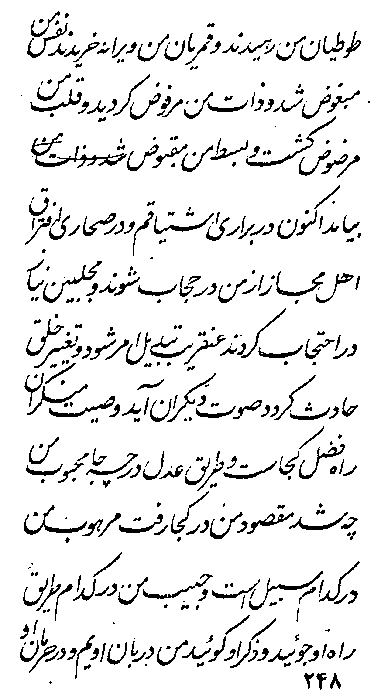 طوطیان من رمیدند و قمریان من ویرانه خریدند نفس من
مبغوض شد و ذات من مرفوض گردید و قلب من
مرضوض گشت و بسط من مقبوض شد و ذات من
بیامد اکنون در براری اشتیاقم و در صحاری افتراق
اهل مجاز از من در حجاب شوند و مجلسین نیاز
در احتجاب گردند عنقریب تبدیل امر شود و تغییر خلق
حادث گردد صوت دیگران آید و صیت منکران
راه فضل کجاست و طریق عدل در چه جا محبوب من
چه شد مقصود من در کجا رفت مرهوب من
در کدام سبیل است و حبیب من در کدام طریق
راه او جوئید و ذکر او گوئید من دربان اویم و در حرمان او
۲۴۸